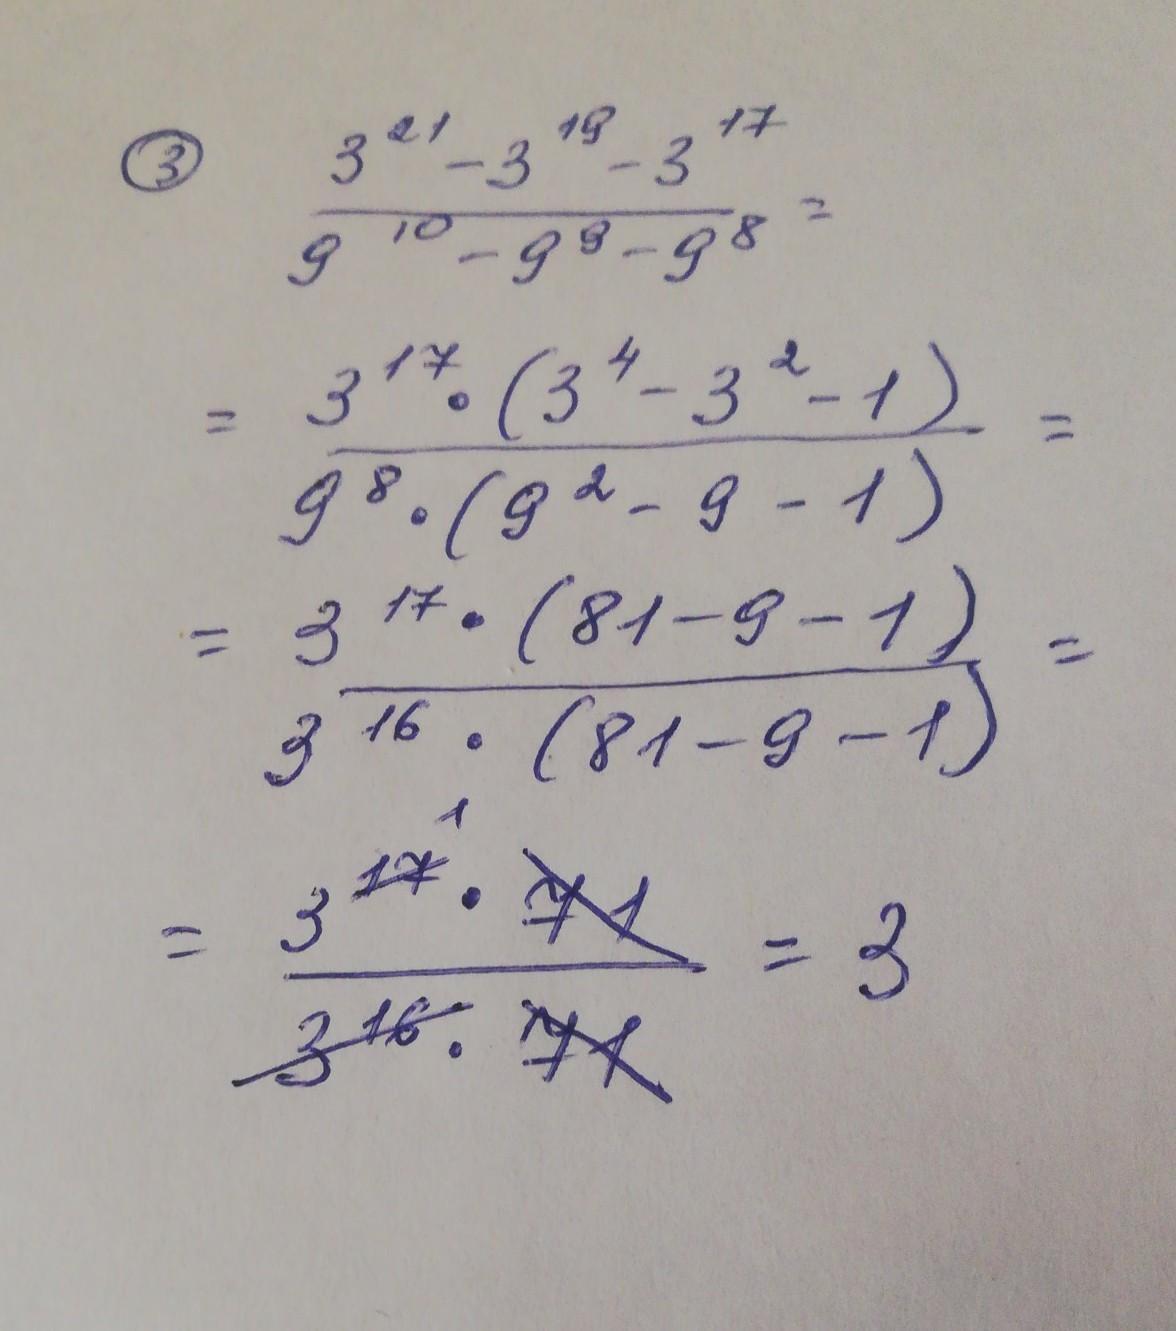 ③ 3²¹ - 3¹⁹ - 3¹⁷
9¹⁰ - 9⁹ - 9⁸ =
= 3¹⁷ · (3⁴ - 3² - 1) =
9⁸ · (9² - 9 - 1)
= 3¹⁷ · (81 - 9 - 1) =
3¹⁶ · (81 - 9 - 1)
1
= 3¹⁷ · 71 = 3
3¹⁶ · 71